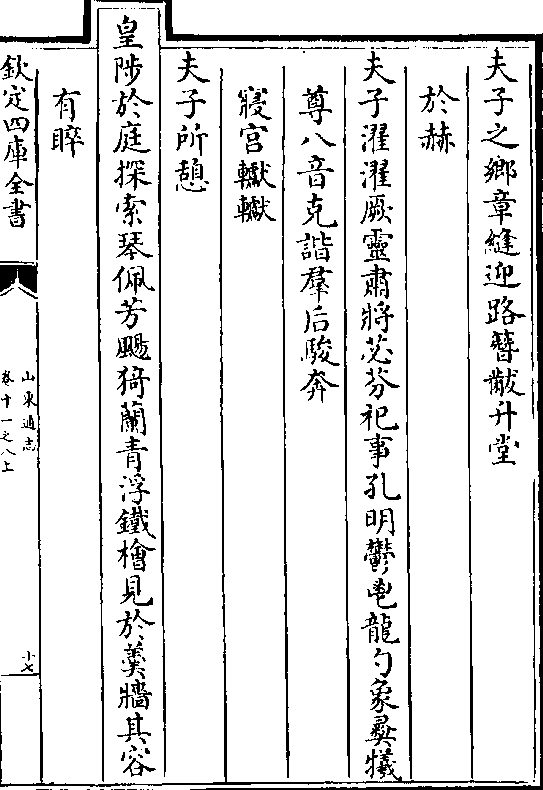 夫子之鄉章縫迎路簪黻升堂
於赫
夫子濯濯厥靈肅將苾芬祀事孔明鬱鬯龍勺象彞犧
尊八音克諧羣后駿奔
寢宮轞轞
夫子所憩
皇陟於庭探索琴佩芳颺猗蘭青浮鐵檜見於羮牆其容
有睟
欽定四庫全書
山東通志
卷十一之八上
十七